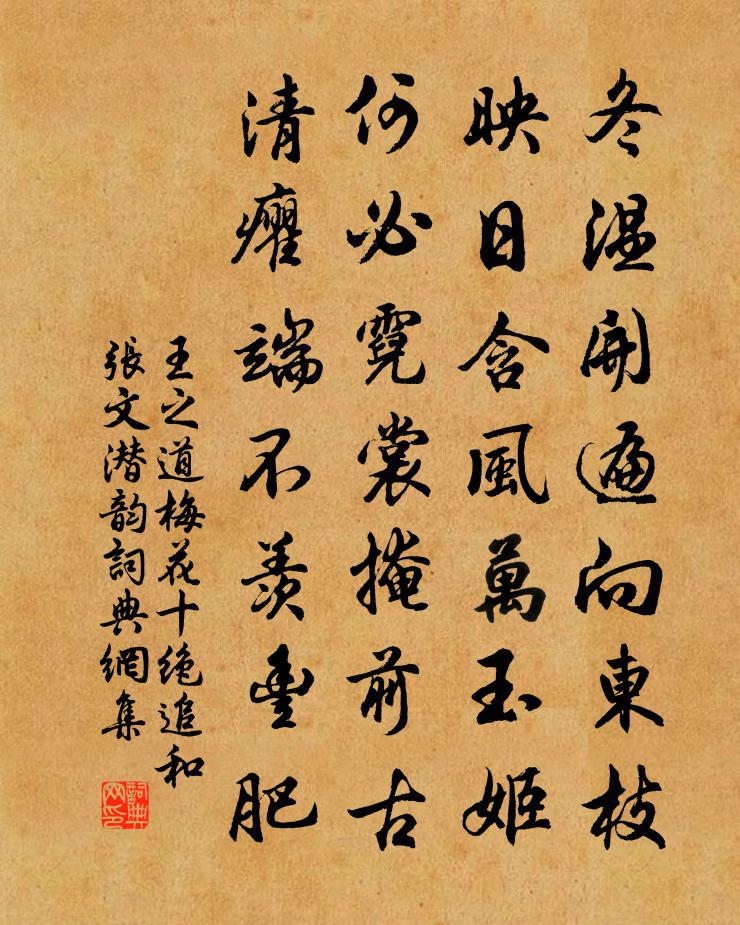 冬温開遍向東枝
映日含風萬玉姬
何必霓裳掩前古
清癯端不羨豊肥
王之道梅花十絶追和
張文潜韵詞典網集
詞典网印